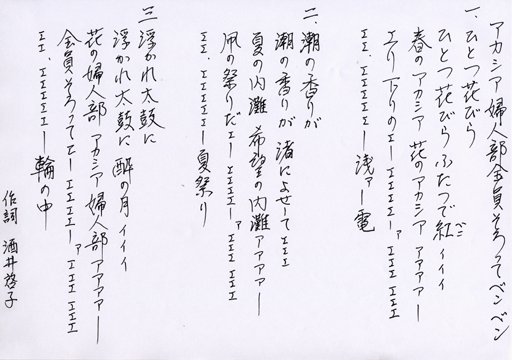 アカシア婦人部全員そろってベンベン
一、ひとつ花びら
ひとつ花びら ふたつで紅 イイイ
べに
春のアカシア 花のアカシア アアアアー
エーリ下りのエーエエエエーァエエエ エエエ
エエ、エエエエエー浅ァー電
二、潮の香りが
潮の香りが 渚によせーて エエエ
夏の内灘 希望の内灘アアアアー
凧の祭りだエーエエエエーァエエエ エエエ
エエ、エエエエエー夏祭り
三、浮かれ太鼓に
浮かれ太鼓に 酔の月 イイイ
花の婦人部 アカシア婦人部アアアアー
会員そろってエーエエエエーァエエエ エエエ
エエ、エエエエエー輪の中
作詞 酒井啓子